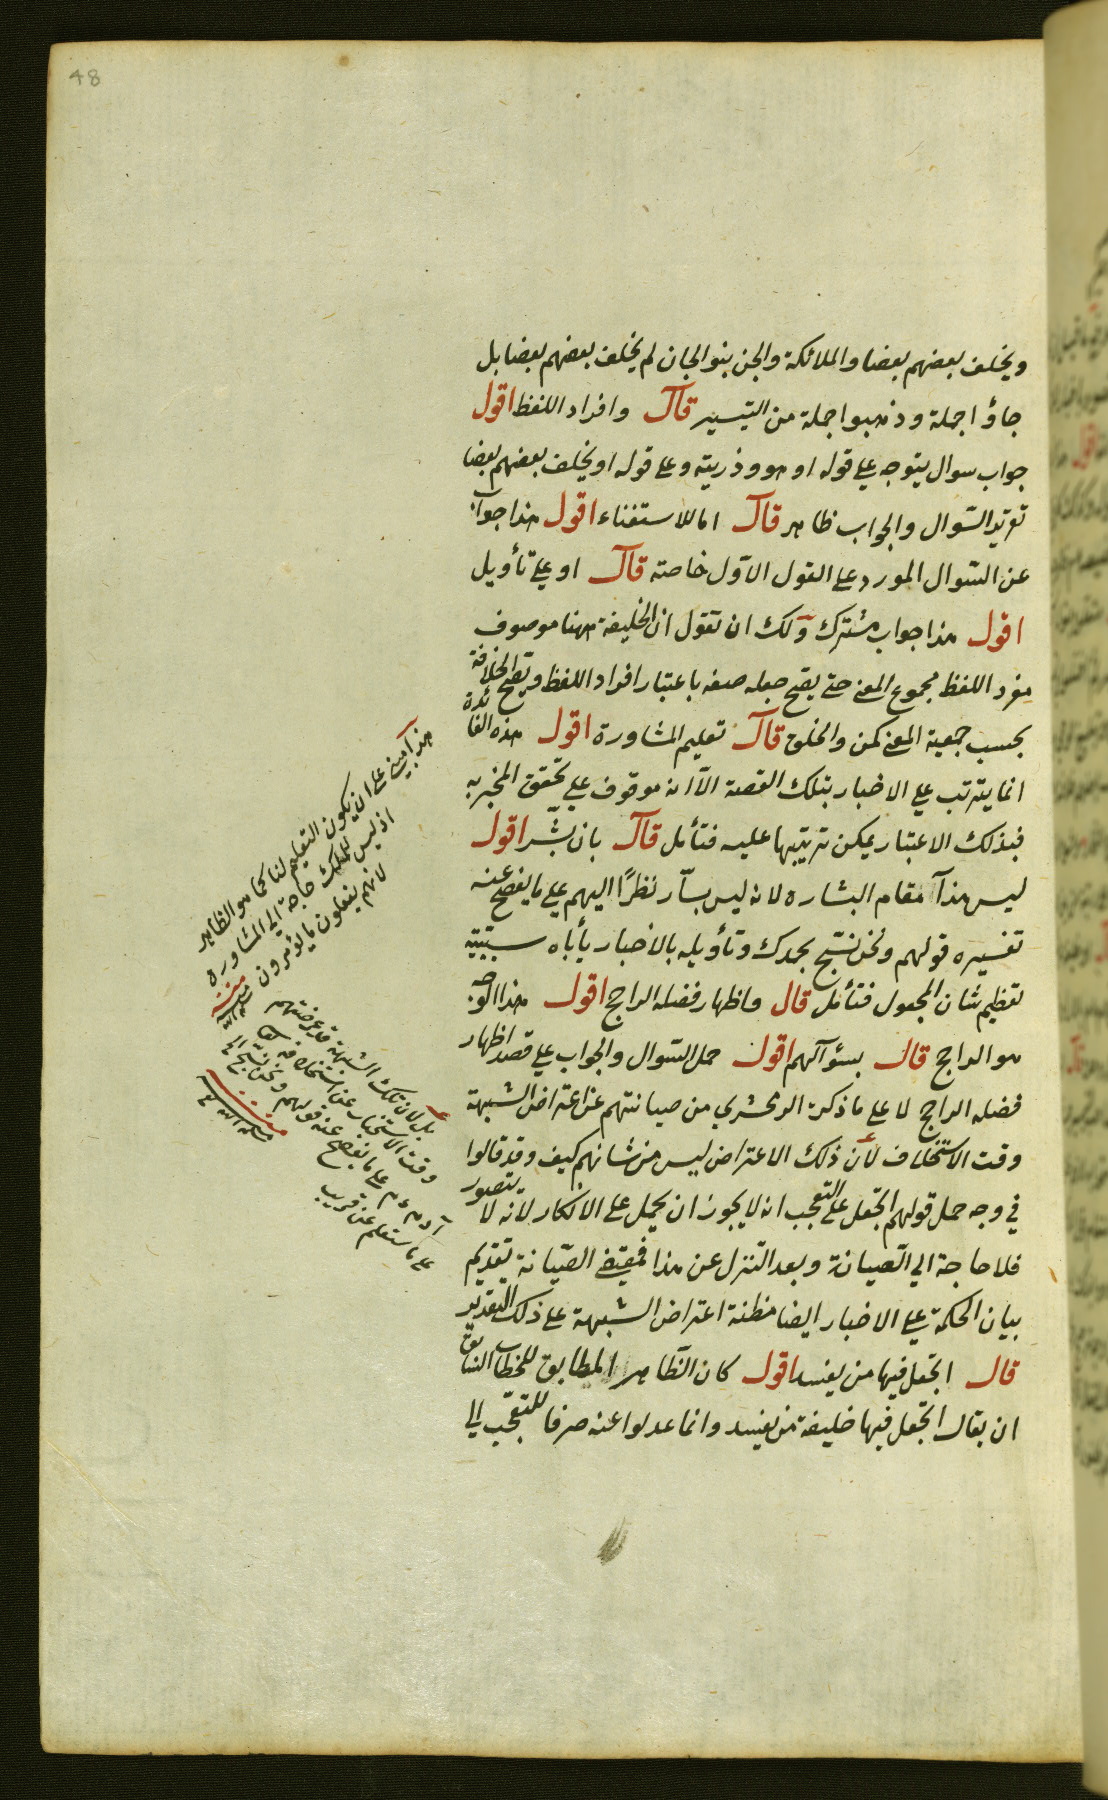 48
ويخلف بعضهم بعضا والملائكة والجن بنو الجان لم يخلف بعضهم بعضا بل
جاؤا جملة وذهبوا جملة من التيسير قال وافراد اللفظ اقول
جواب سوال يتوجه علي قوله او هو وذريته وعلى قوله او يخلف بعضهم بعضا
تقرير السّوال والجواب ظاهر قال اما للاستغناء اقول هذا جواب
عن السّوال المورد على القول الاوّل خاصته قال او علي تأويل
اقول هذا جواب مشترك ولك ان تقول ان الخليفة ههنا موصوف
مفرد اللفظ مجموع المعنى حتى يصح جعله صفه باعتبار افراد اللفظ ويصح الخلافة
بحسب جمعية المعنى كمن والخلق قال تعليم المشاورة اقول هذه الفائدة
انما يترتب علي الاخبار بتلك القصة الّا انه موقوف علي تحقق المخبر به
فبذلك الاعتبار يمكن ترتيبها عليه فتأمل قال بان بشّر اقول
ليس هذا مقام البشاره لانه ليس بسارّ نظرًا اليهم علي ما يفصح عنه
تفسيره قولهم ونحن نسبّح بحمدك وتأويله بالاخبار يأباه
تعظيم شان المجعول فتأمل قال واظهار فضله الراجح اقول هذا الوجه
هو الراجح قال بسؤالهم اقول حمل السّوال والجواب علي قصد اظهار
فضله الراجح لا على ما ذكره الزمخشري من صيانتهم عن اعتراض الشبهة
وقت الاستخلاف لأن ذلك الاعتراض ليس من شانهم كيف وقد قالوا
في وجه حمل قولهم اتجعل على التعجب انه لا يجوز ان يحمل على الانكار لانه لا يتصور
فلا حاجة الي الصّيانة وبعد التنزل عن هذا فمقتضى الصّيانة تقديم
بيان الحكمة علي الاخبار ايضا مظنة اعتراض الشبهة على ذلك التقدير
قال اتجعل فيها من يفسد اقول كان الظّاهر المطابق للخطاب السّابق
ان يقال اتجعل فيها خليفة من يفسد وانما عدلوا عنه صرفا للتعجّب الي
هذا مبني على ان يكون التعليم لنا كما هو الظاهر
اذ ليس للملك حاجة الي المشاوره
لانهم يفعلون ما يؤمرون منه
بل لان تلك الشبهة قد عرضتهم
وقت الاخبار عن استخلافه
آدم على ما يفصح عنه قولهم ونحن نسبح
على ما ستعلم عن قريب
منه